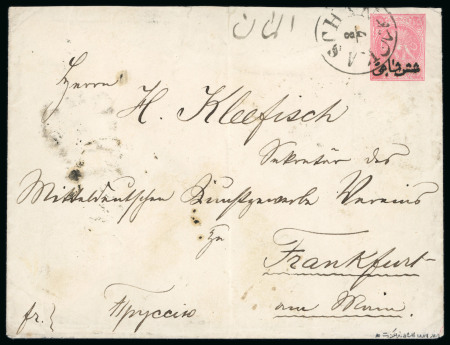 المان
Herrn
H. Kleefisch
Sekretär des
Mitteldeutschen Kunstgewerbe Vereins
zu
Frankfurt
am Main.
fr. Пруссію